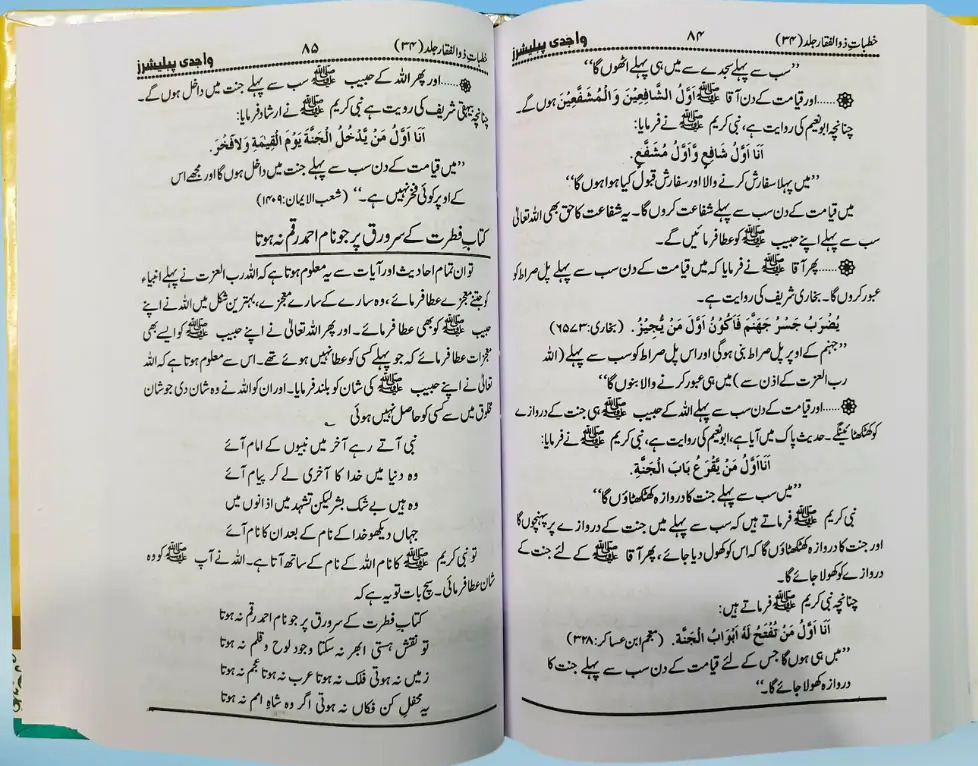 خطباتِ ذوالفقار جلد (۳۴) ۸۴ واجدی پبلیشرز
’’سب سے پہلے سجدے سے میں ہی پہلے اٹھوں گا‘‘
......اور قیامت کے دن آقا ﷺ اَوَّلُ الشَّافِعِیْنَ وَالْمُشَفَّعِیْنَ ہوں گے۔
چنانچہ ابونعیم کی روایت ہے، نبی کریم ﷺ نے فرمایا:
اَنَا اَوَّلُ شَافِعٍ وَّاَوَّلُ مُشَفَّعٍ.
’’میں پہلا سفارش کرنے والا اور سفارش قبول کیا ہوا ہوں گا‘‘
میں قیامت کے دن سب سے پہلے شفاعت کروں گا۔ یہ شفاعت کا حق بھی اللہ تعالیٰ
سب سے پہلے اپنے حبیب ﷺ کو عطا فرمائیں گے۔
......پھر آقا ﷺ نے فرمایا کہ میں قیامت کے دن سب سے پہلے پل صراط کو
عبور کروں گا۔ بخاری شریف کی روایت ہے۔
یُضْرَبُ جَسْرُ جَهَنَّمَ فَاَکُوْنُ اَوَّلَ مَنْ یُّجِیْزُ. (بخاری: ۶۵۷۳)
’’جہنم کے اوپر پل صراط بنی ہوگی اور اس پل صراط کو سب سے پہلے (اللہ
رب العزت کے اذن سے) میں ہی عبور کرنے والا بنوں گا‘‘
......اور قیامت کے دن سب سے پہلے اللہ کے حبیب ﷺ ہی جنت کے دروازے
کو کھٹکھٹائینگے۔ حدیث پاک میں آیا ہے، ابونعیم کی روایت ہے، نبی کریم ﷺ نے فرمایا:
اَنَا اَوَّلُ مَنْ یَّقْرَعُ بَابَ الْجَنَّةِ.
’’میں سب سے پہلے جنت کا دروازہ کھٹکھٹاؤں گا‘‘
نبی کریم ﷺ فرماتے ہیں کہ سب سے پہلے میں جنت کے دروازے پر پہنچوں گا
اور جنت کا دروازہ کھٹکھٹاؤں گا کہ اس کو کھول دیا جائے، پھر آقا ﷺ کے لئے جنت کے
دروازے کو کھولا جائے گا۔
چنانچہ نبی کریم ﷺ فرماتے ہیں:
اَنَا اَوَّلُ مَنْ تُفْتَحُ لَهٗ اَبْوَابُ الْجَنَّة. (معجم ابن عساکر: ۳۲۸)
’’میں ہی ہوں گا جس کے لئے قیامت کے دن سب سے پہلے جنت کا
دروازہ کھولا جائے گا۔‘‘
خطباتِ ذوالفقار جلد (۳۴) ۸۵ واجدی پبلیشرز
......اور پھر اللہ کے حبیب ﷺ سب سے پہلے جنت میں داخل ہوں گے۔
چنانچہ بیہقی شریف کی رویت ہے نبی کریم ﷺ نے ارشاد فرمایا:
اَنَا اَوَّلُ مَنْ یَّدْخُلُ الْجَنَّةَ یَوْمَ الْقِیٰمَةِ وَلَا فَخْرَ.
’’میں قیامت کے دن سب سے پہلے جنت میں داخل ہوں گا اور مجھے اس
کے اوپر کوئی فخر نہیں ہے۔‘‘ (شعب الایمان: ۱۴۰۹)
کتاب فطرت کے سر ورق پر جو نام احمد رقم نہ ہوتا
تو ان تمام احادیث اور آیات سے یہ معلوم ہوتا ہے کہ اللہ رب العزت نے پہلے انبیاء
کو جتنے معجزے عطا فرمائے، وہ سارے کے سارے معجزے، بہترین شکل میں اللہ نے اپنے
حبیب ﷺ کو بھی عطا فرمائے۔ اور پھر اللہ تعالیٰ نے اپنے حبیب ﷺ کو ایسے بھی
معجزات عطا فرمائے کہ جو پہلے کسی کو عطا نہیں ہوئے تھے۔ اس سے معلوم ہوتا ہے کہ اللہ
تعالیٰ نے اپنے حبیب ﷺ کی شان کو بلند فرمایا۔ اور ان کو اللہ نے وہ شان دی جو شان
مخلوق میں سے کسی کو حاصل نہیں ہوئی ؎
نبی آتے رہے آخر میں نبیوں کے امام آئے
وہ دنیا میں خدا کا آخری لے کر پیام آئے
وہ ہیں بے شک بشر لیکن تشہد میں اذانوں میں
جہاں دیکھو خدا کے نام کے بعد ان کا نام آئے
تو نبی کریم ﷺ کا نام اللہ کے نام کے ساتھ آتا ہے۔ اللہ نے آپ ﷺ کو وہ
شان عطا فرمائی۔ سچ بات تو یہ ہے کہ
کتاب فطرت کے سر ورق پر جو نام احمد رقم نہ ہوتا
تو نقش ہستی ابھر نہ سکتا وجود لوح و قلم نہ ہوتا
زمیں نہ ہوتی فلک نہ ہوتا عرب نہ ہوتا عجم نہ ہوتا
یہ محفل کن فکاں نہ ہوتی اگر وہ شاہ امم نہ ہوتا